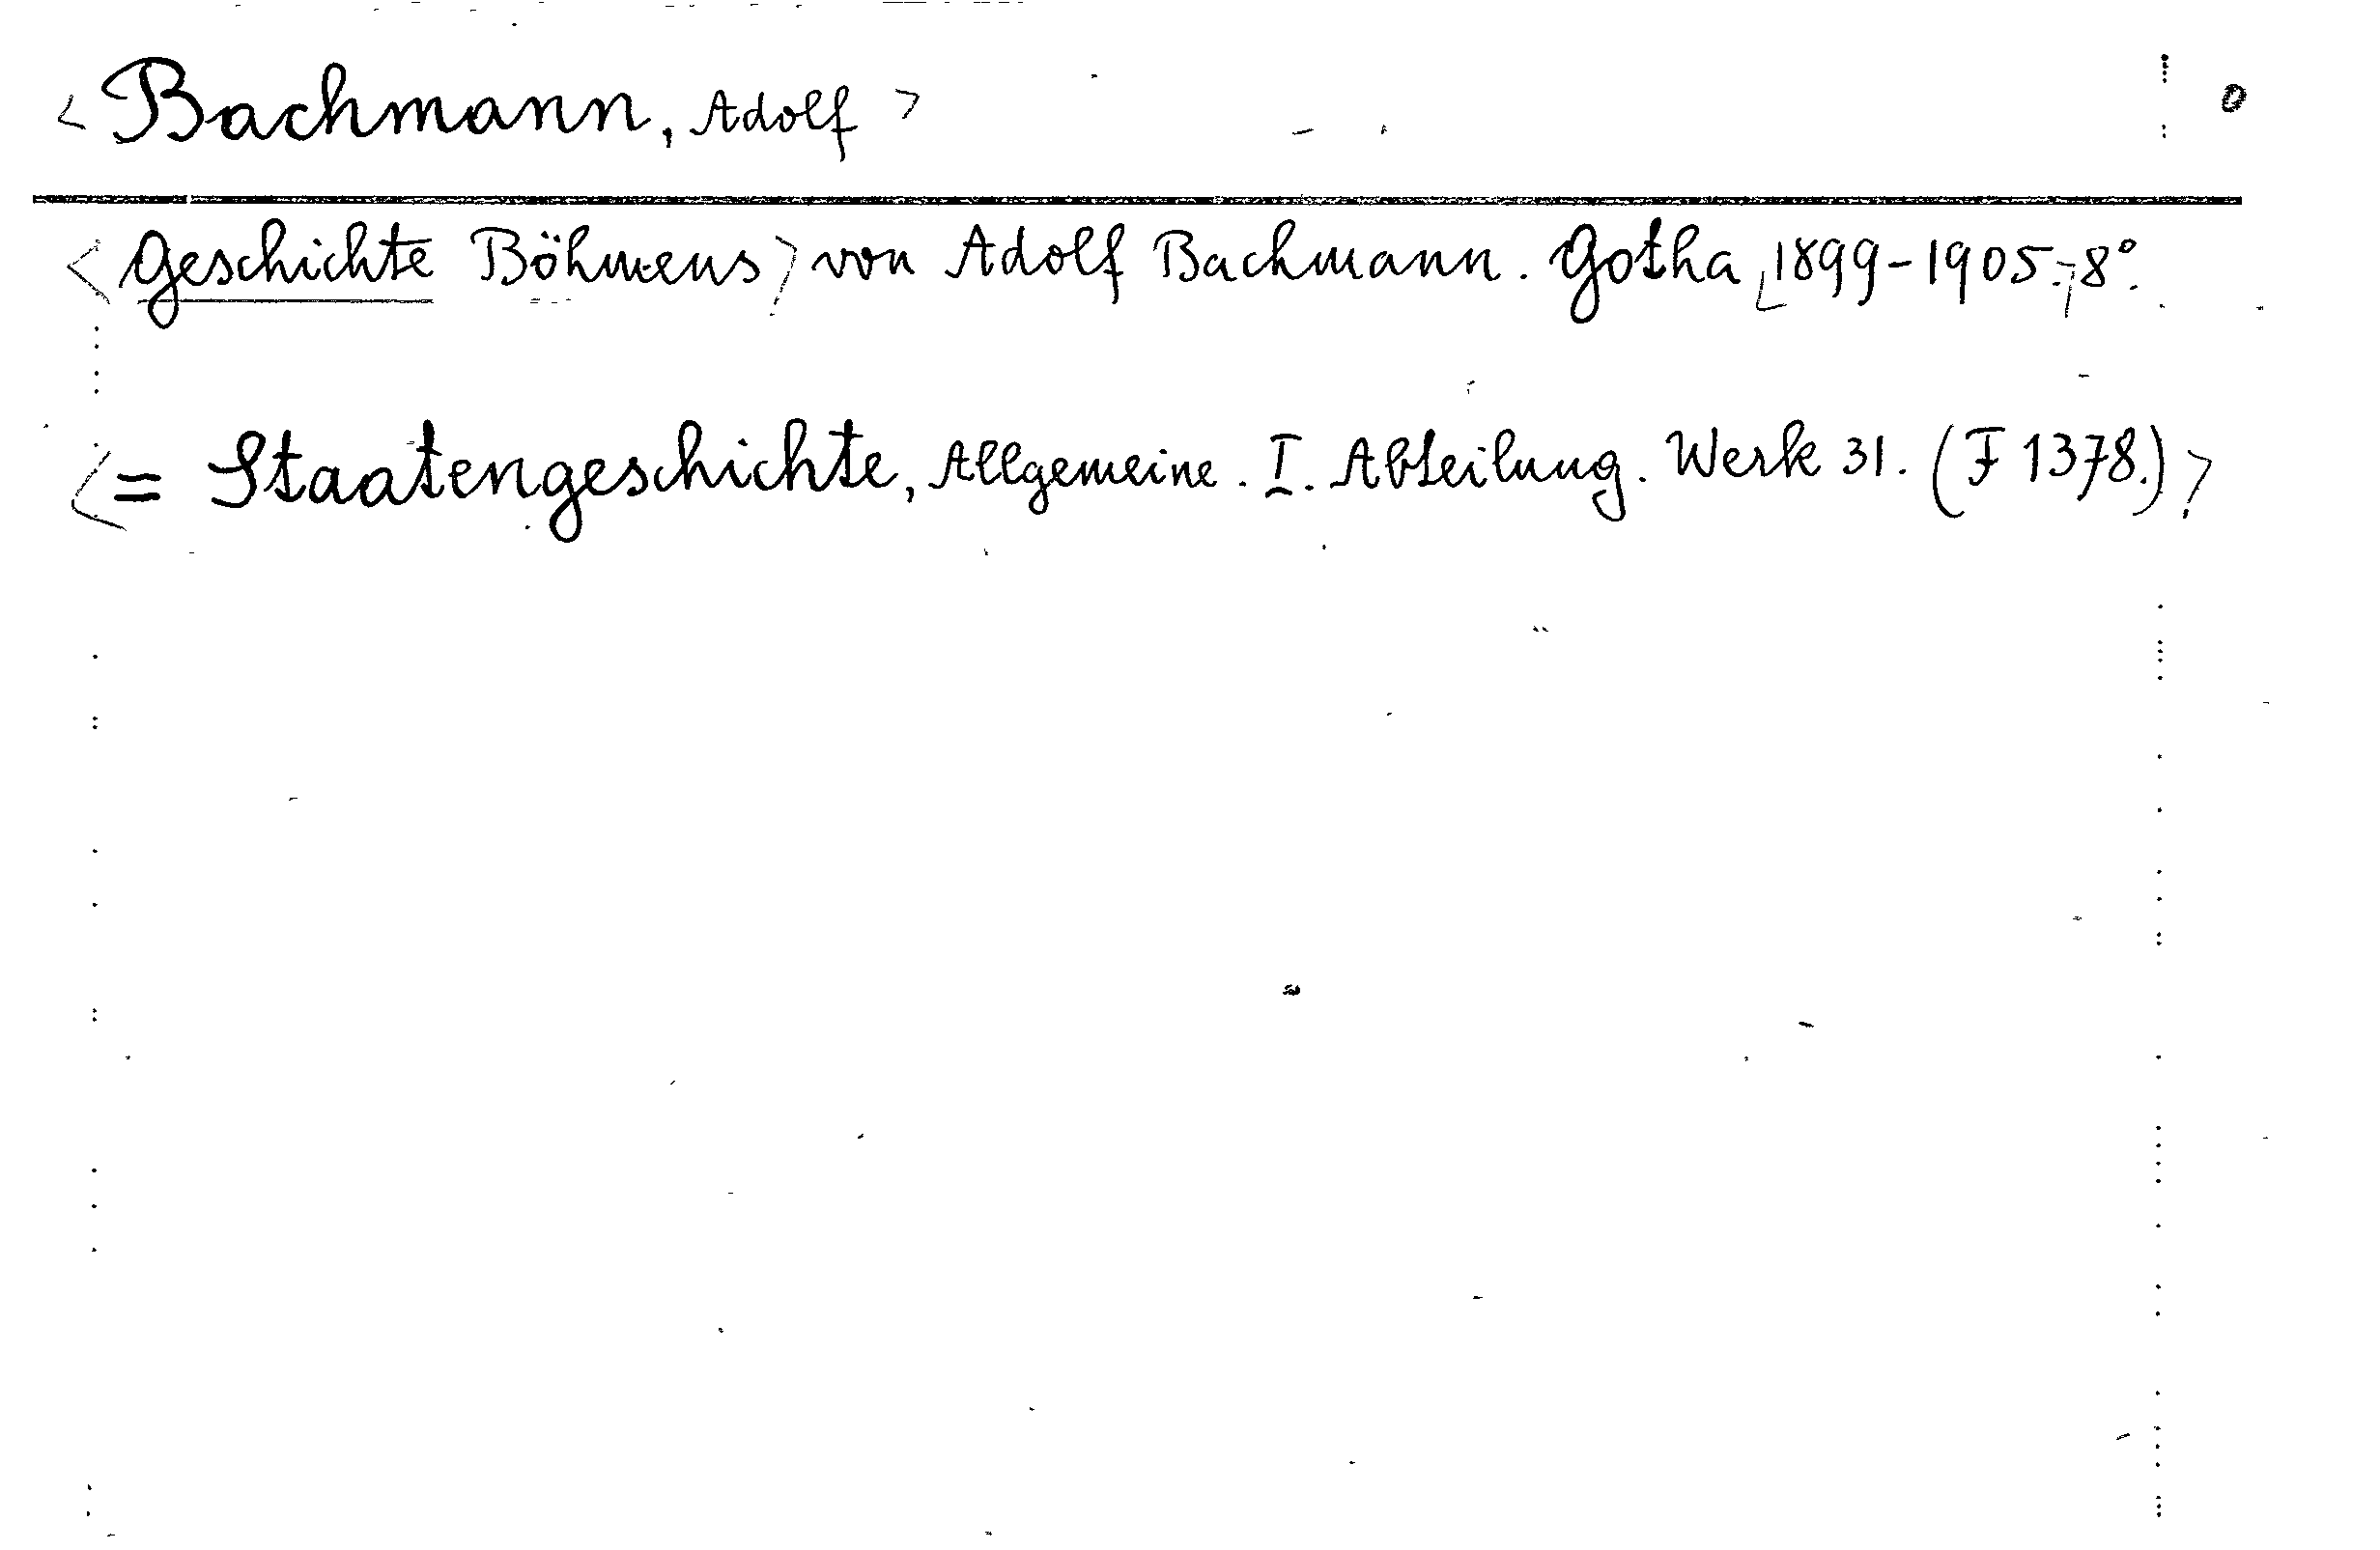 <Bachmann, Adolf> 0
<Geschichte Böhmens> von Adolf Bachmann. Gotha <1899-1905.> 8°.
<= Staatengeschichte, Allgemeine. I. Abteilung. Werk 31. (F 1378.)>